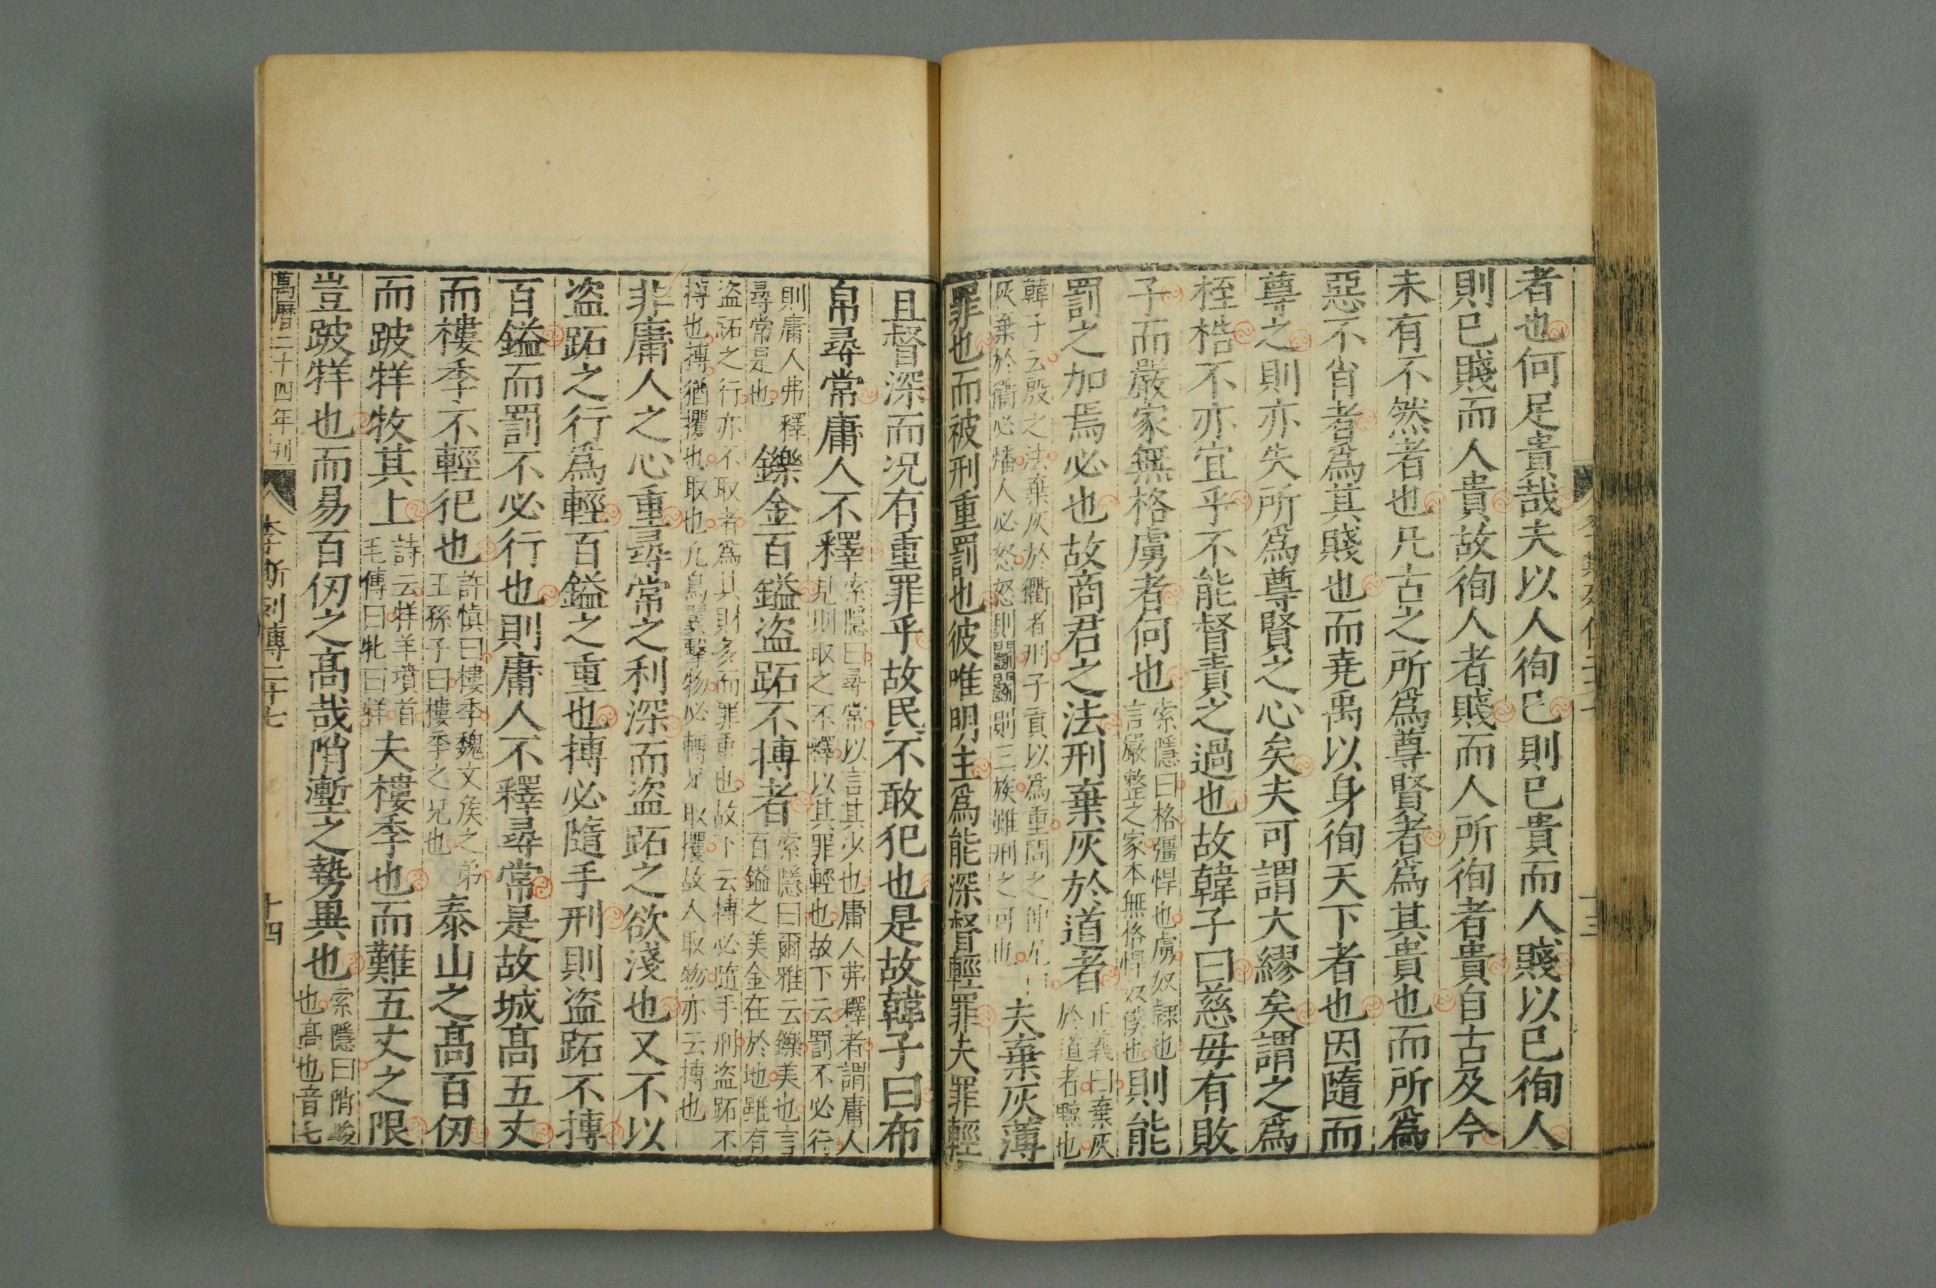 者也何足貴哉夫以人徇己則己貴而人賤以己徇人
則己賤而人貴故徇人者賤而人所徇者貴自古及今
未有不然者也凡古之所爲尊賢者爲其貴也而所爲
惡不肖者爲其賤也而堯禹以身徇天下者也因隨而
尊之則亦失所爲尊賢之心矣夫可謂大繆矣謂之爲
桎梏不亦宜乎不能督責之過也故韓子曰慈母有敗
子而嚴家無格虜者何也索隱曰格彊悍也虜奴隸也言嚴整之家本無格悍奴僕也則能
罰之加焉必也故商君之法刑棄灰於道者正義曰棄灰於道者黥也
韓子云殷之法棄灰於衢者刑子貢以爲重問之仲尼曰灰棄於衢必燔人必怒怒則鬬鬬則三族雖刑之可也夫棄灰薄
罪也而被刑重罰也彼唯明主爲能深督輕罪夫罪輕
且督深而况有重罪乎故民不敢犯也是故韓子曰布
帛尋常庸人不釋索隱曰尋常以言其少也庸人弗釋者謂庸人見則取之不釋以其罪輕也故下云罰不必行
則庸人弗釋尋常是也鑠金百鎰盜跖不搏者索隱曰爾雅云鑠美也言百鎰之美金在於地雖有
盜跖之行亦不取者爲其財多而罪重也故下云搏必隨手刑盜跖不搏也搏猶攫也取也凡鳥翼擊物必轉足取攫故人取物亦云搏也
非庸人之心重尋常之利深而盜跖之欲淺也又不以
盜跖之行爲輕百鎰之重也搏必隨手刑則盜跖不搏
百鎰而罰不必行也則庸人不釋尋常是故城高五丈
而樓季不輕犯也許慎曰樓季魏文侯之弟王孫子曰樓季之兄也泰山之高百仞
而跛牂牧其上詩云牂羊墳首毛傳曰牝曰牂夫樓季也而難五丈之限
豈跛牂也而易百仞之高哉陗塹之勢異也索隱曰陗峻也高也音七
萬曆二十四年刊
李斯列傳二十七
十四